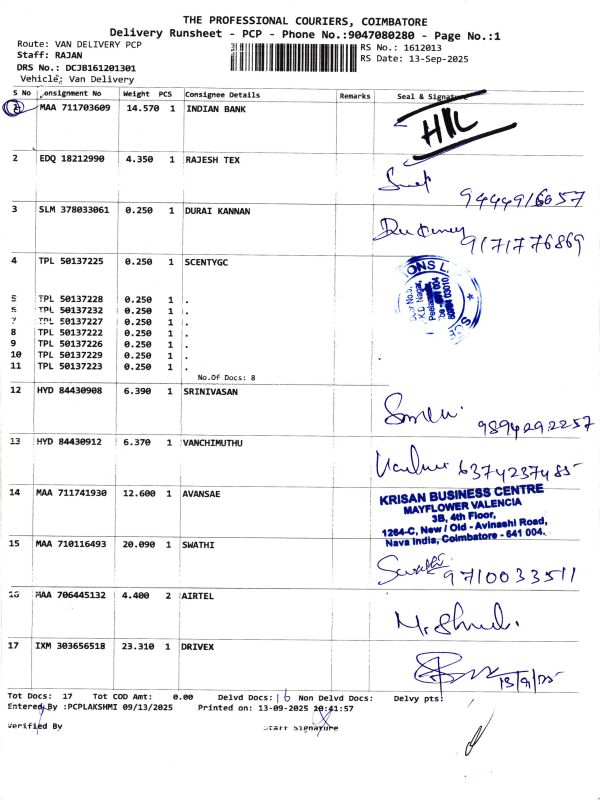 THE PROFESSIONAL COURIERS, COIMBATORE
Delivery Runsheet - PCP - Phone No.:9047080280 - Page No.:1
Route: VAN DELIVERY PCP
Staff: RAJAN
DRS No.: DCJB161201301
Vehicle: Van Delivery
RS No.: 1612013
RS Date: 13-Sep-2025
S No Consignment No Weight PCS Consignee Details Remarks Seal & Signature
1 MAA 711703609 14.570 1 INDIAN BANK
2 EDQ 18212990 4.350 1 RAJESH TEX
3 SLM 378033061 0.250 1 DURAI KANNAN
9171776869
4 TPL 50137225 0.250 1 SCENTYGC
5 TPL 50137228 0.250 1 .
6 TPL 50137232 0.250 1 .
7 TPL 50137227 0.250 1 .
8 TPL 50137222 0.250 1 .
9 TPL 50137226 0.250 1 .
10 TPL 50137229 0.250 1 .
11 TPL 50137223 0.250 1 .
No.Of Docs: 8
12 HYD 84430908 6.390 1 SRINIVASAN
9894292257
13 HYD 84430912 6.370 1 VANCHIMUTHU
6374237485
14 MAA 711741930 12.600 1 AVANSAE
KRISAN BUSINESS CENTRE
MAYFLOWER VALENCIA
3B, 4th Floor,
1264-C, New / Old - Avinashi Road,
Nava India, Coimbatore - 641 004.
15 MAA 710116493 20.090 1 SWATHI
Swathi 9710033511
16 MAA 706445132 4.400 2 AIRTEL
17 IXM 303656518 23.310 1 DRIVEX
13/9/25
Tot Docs: 17 Tot COD Amt: 0.00 Delvd Docs: 16 Non Delvd Docs: Delvy pts:
Entered By :PCPLAKSHMI 09/13/2025 Printed on: 13-09-2025 10:41:57
Verified By Staff Signature